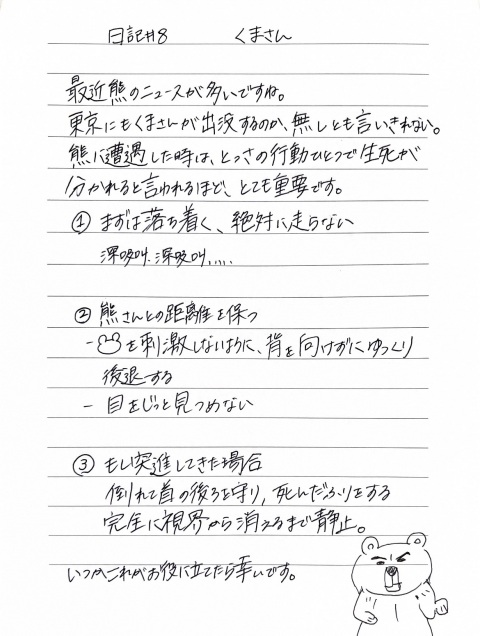 日記#8 くまさん
最近熊のニュースが多いですね。
東京にもくまさんが出没するのか、無しとも言いきれない。
熊に遭遇した時は、とっさの行動ひとつで生死が
分かれると言われるほど、とても重要です。
① まずは落ち着く、絶対に走らない
深呼叫、深呼叫....
② 熊さんとの距離を保つ
- を刺激しないように、背を向けずにゆっくり
後退する
- 目をじっと見つめない
③ もし突進してきた場合
倒れて首の後ろを守り、死んだふりをする
完全に視界から消えるまで静止。
いつかこれがお役に立てたら幸いです。